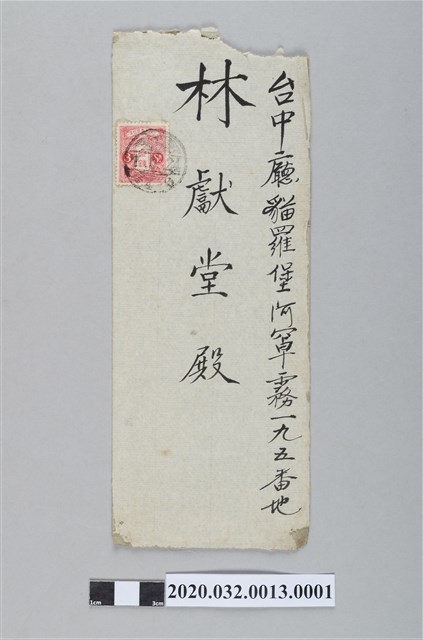 台中廳貓羅堡阿罩霧一九五番地
林獻堂殿
1cm
3cm
2020.032.0013.0001